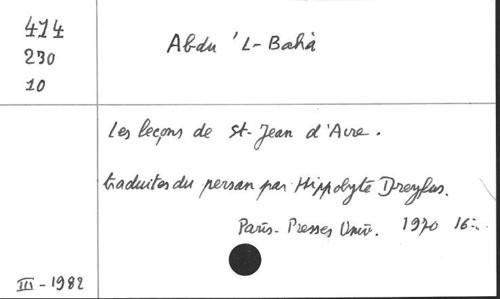 414
230
10
Abdu 'L-Bahà
Les leçons de St-Jean d'Acre.
traduites du persan par Hippolyte Dreyfus.
Paris. Presses Univ. 1970 16:
III - 1982